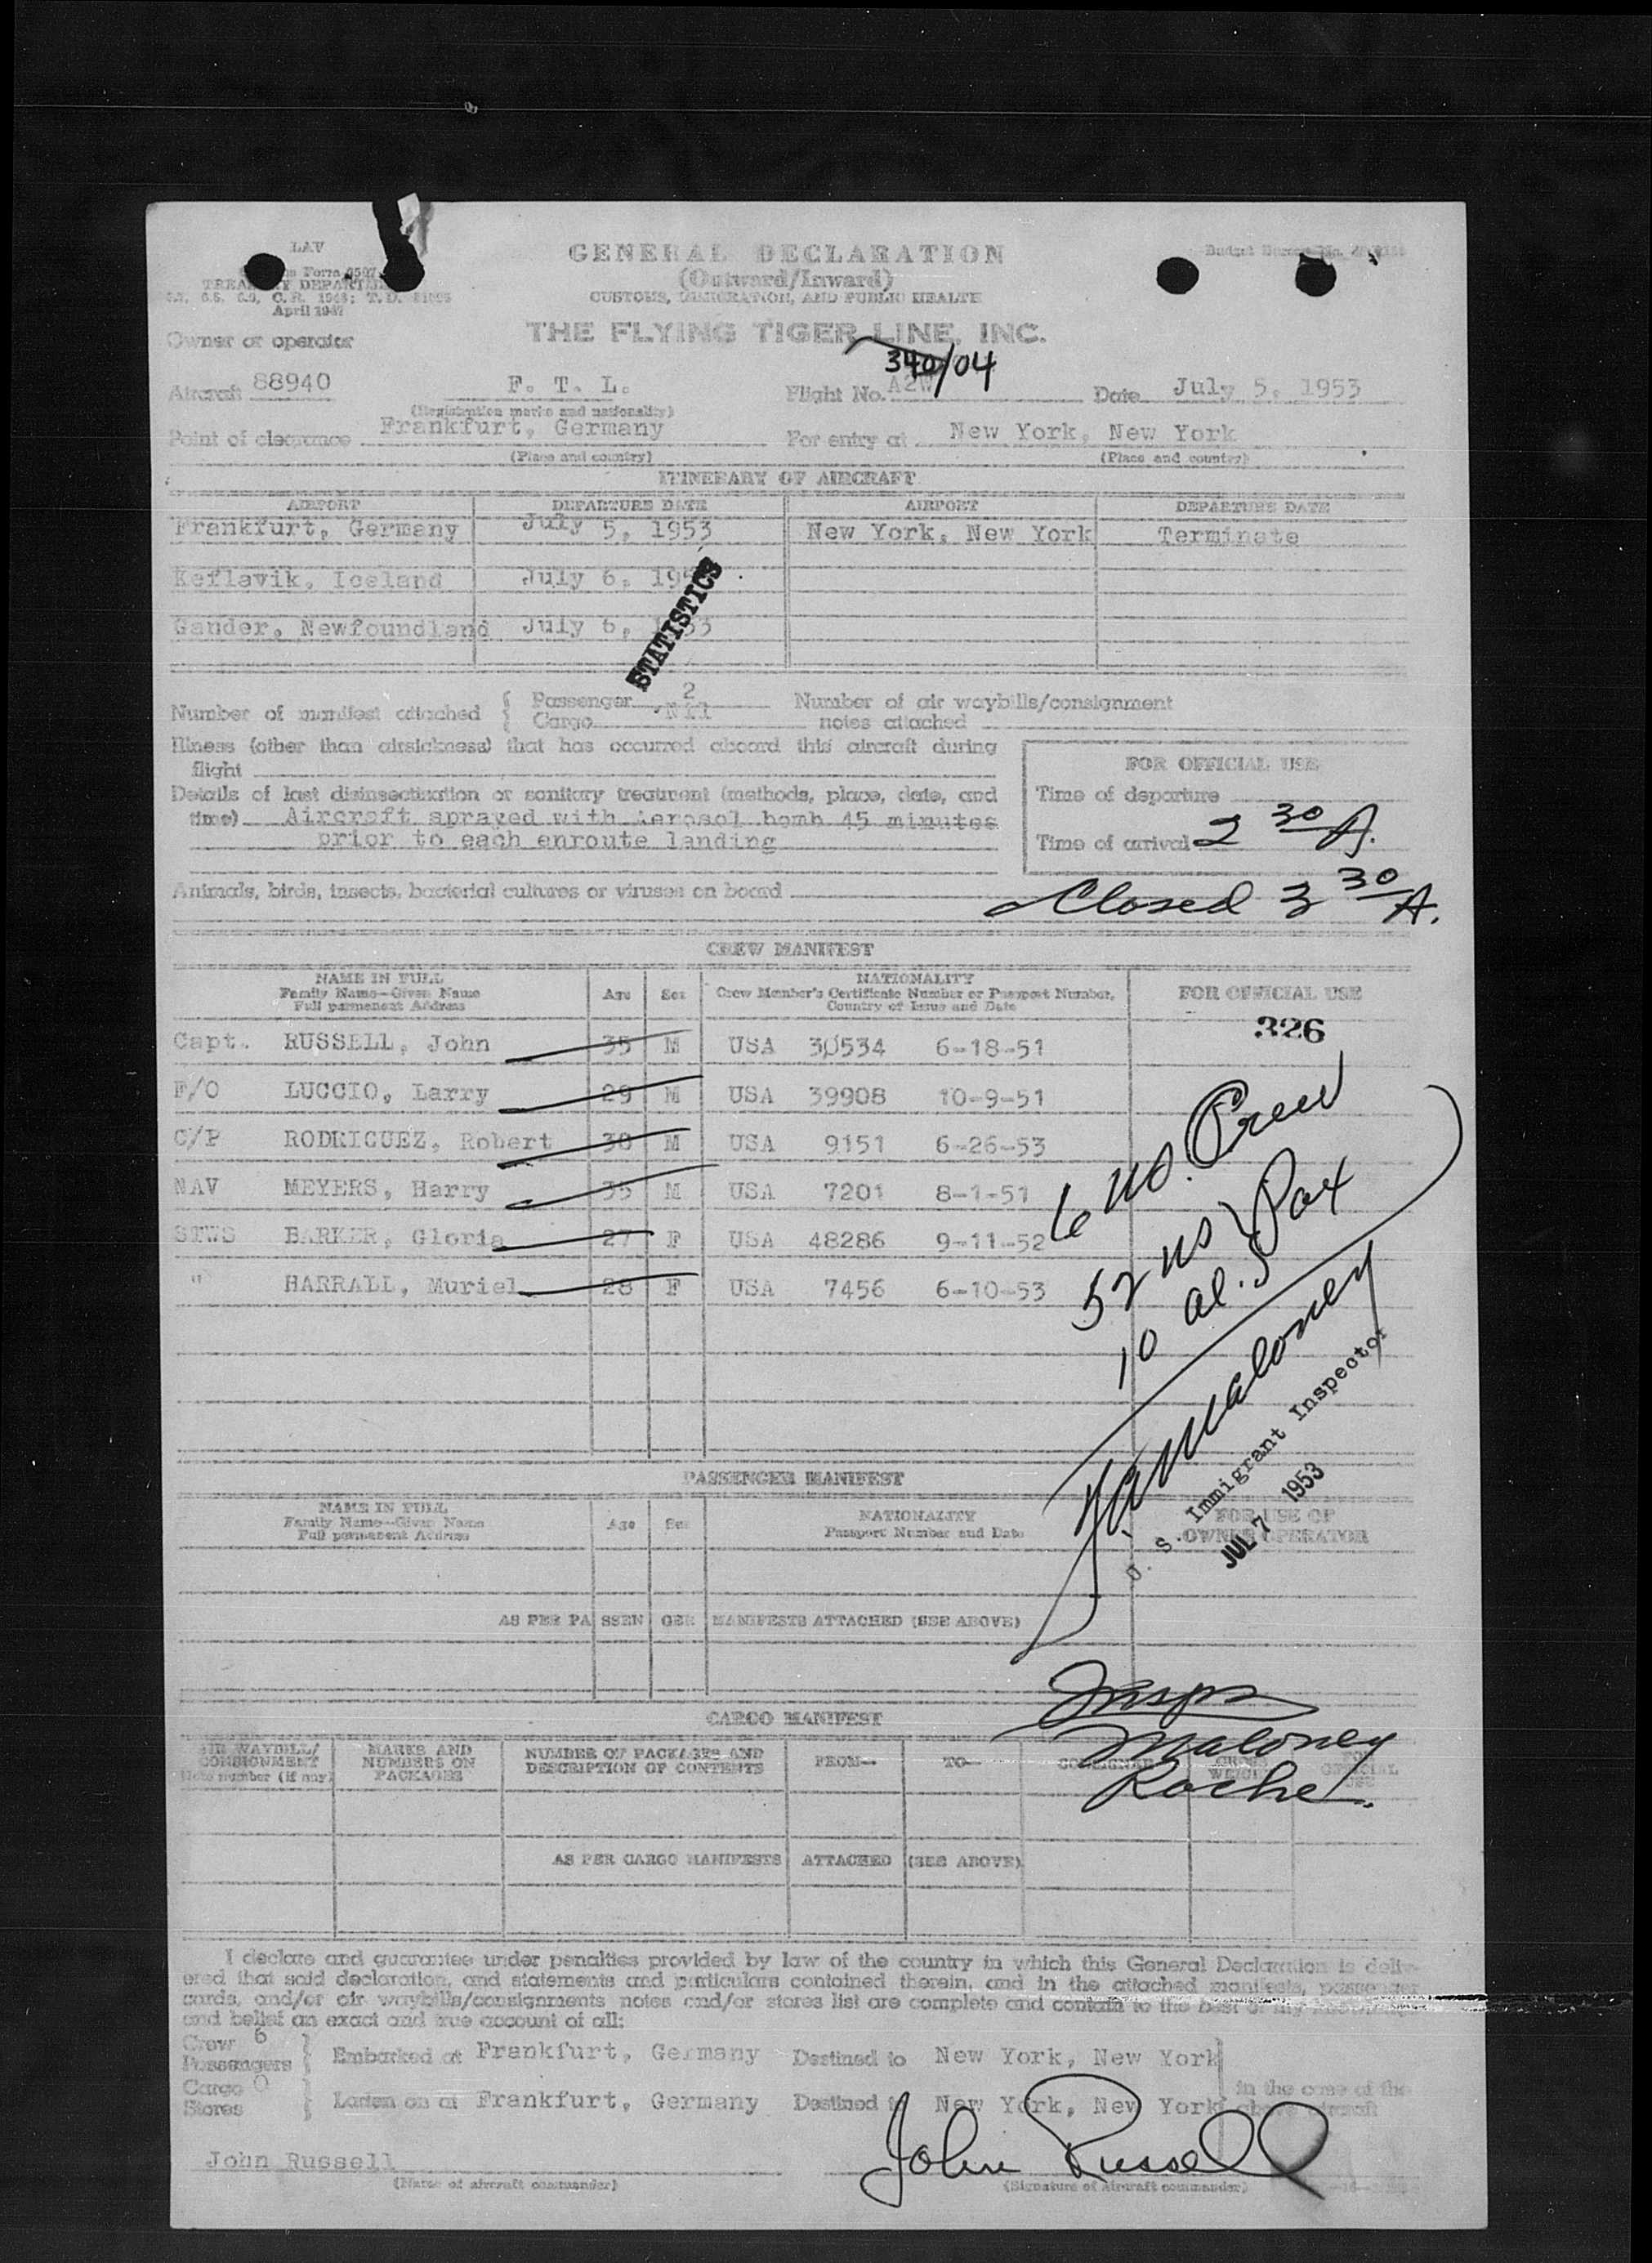 LAV
GENERAL DECLARATION
(Outward/Inward)
CUSTOMS, IMMIGRATION, AND PUBLIC HEALTH
April 1947
THE FLYING TIGER LINE, INC.
Owner or operator
340/04
Aircraft 88940 F. T. L. Flight No. A2W Date July 5, 1953
(Registration marks and nationality)
Point of clearance Frankfurt, Germany For entry at New York, New York
(Place and country) (Place and country)
ITINERARY OF AIRCRAFT
AIRPORT DEPARTURE DATE AIRPORT DEPARTURE DATE
Frankfurt, Germany July 5, 1953 New York, New York Terminate
Keflavik, Iceland July 6, 195
Gander, Newfoundland July 6, 1953
STATISTICS
Number of manifest attached { Passenger 2 Number of air waybills/consignment
Cargo Nil notes attached
Illness (other than airsickness) that has occurred aboard this aircraft during
flight
FOR OFFICIAL USE
Details of last disinsectization or sanitary treatment (methods, place, date, and
time) Aircraft sprayed with Aerosol bomb 45 minutes
prior to each enroute landing
Time of departure
Time of arrival 2 30 A.
Animals, birds, insects, bacterial cultures or viruses on board
Closed 3 30 A.
CREW MANIFEST
NAME IN FULL
Family Name—Given Name
Full permanent Address
Age Sex
NATIONALITY
Crew Member's Certificate Number or Passport Number,
Country of Issue and Date
FOR OFFICIAL USE
326
Capt. RUSSELL, John 35 M USA 30534 6-18-51
F/O LUCCIO, Larry 29 M USA 39908 10-9-51
C/P RODRIGUEZ, Robert 30 M USA 9151 6-26-53
NAV MEYERS, Harry 35 M USA 7201 8-1-51
STWS BARKER, Gloria 27 F USA 48286 9-11-52
" HARRALL, Muriel 28 F USA 7456 6-10-53
6 US. Crew
52 US } Pax
10 al.
Maloney
U. S. Immigrant Inspector
JUL 7 1953
PASSENGER MANIFEST
NAME IN FULL
Family Name—Given Name
Full permanent Address
Age Sex
NATIONALITY
Passport Number and Date
FOR USE OF
OWNER OPERATOR
AS PER PASSENGER MANIFESTS ATTACHED (SEE ABOVE)
Insprs
Maloney
Roche
CARGO MANIFEST
AIR WAYBILL/
CONSIGNMENT
Note number (if any)
MARKS AND
NUMBERS ON
PACKAGES
NUMBER OF PACKAGES AND
DESCRIPTION OF CONTENTS
FROM— TO— CONSIGNEE
GROSS
WEIGHT
FOR
OFFICIAL
USE
AS PER CARGO MANIFESTS ATTACHED (SEE ABOVE)
I declare and guarantee under penalties provided by law of the country in which this General Declaration is deliv-
ered that said declaration, and statements and particulars contained therein, and in the attached manifests, passenger
cards, and/or air waybills/consignments notes and/or stores list are complete and contain to the best of my
and belief an exact and true account of all:
Crew 6
Passengers } Embarked at Frankfurt, Germany Destined to New York, New York
Cargo 0
Stores } Laden on at Frankfurt, Germany Destined to New York, New York
in the case of the
above aircraft
John Russell John Russell
(Name of aircraft commander) (Signature of Aircraft commander)